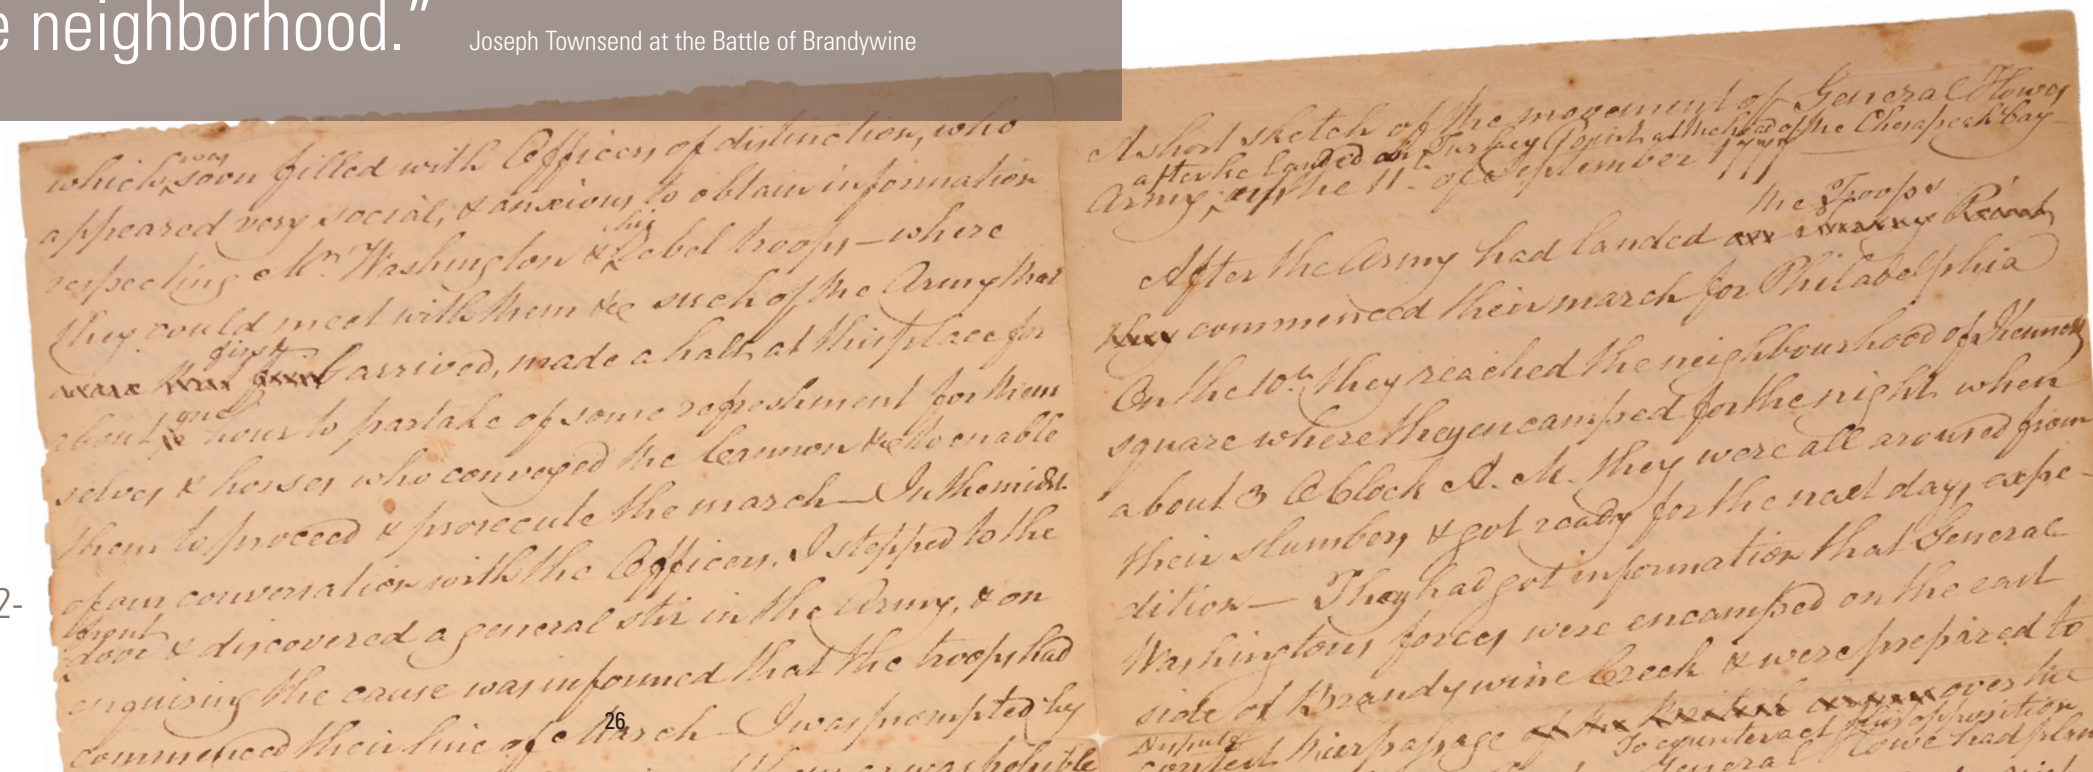 e neighborhood.”
Joseph Townsend at the Battle of Brandywine
2-
which was soon filled with Officers of distinction, who
appeared very social, & anxious to obtain information
respecting Mr. Washington & his Rebel troops – where
they could meet with them &c such of the Army that
first arrived, made a halt at this place for
about one hour to partake of some refreshment for them
selves & horses who conveyed the Cannon &c to enable
them to proceed & prosecute the march – In the midst
of our conversation with the Officers, I stepped to the
front door & discovered a general stir in the Army, & on
enquiring the cause was informed that the troops had
commenced their line of March – I was prompted by
26
A short sketch of the movement of General Howes
after he landed on Turkey Point at the head of the Chesapeek bay
Army, the 11th of September 1777
the Troops
After the Army had landed
they commenced their march for Philadelphia
On the 10th they reached the neighbourhood of Kennett
square where they encamped for the night when
about 3 OClock A. M. they were all aroused from
their slumbers & got ready for the next days expe-
dition – They had got information that General
Washingtons forces were encamped on the east
side of Brandywine Creek & were prepared to
dispute
contest their passage over the
To counteract this opposition
General Howe had plan